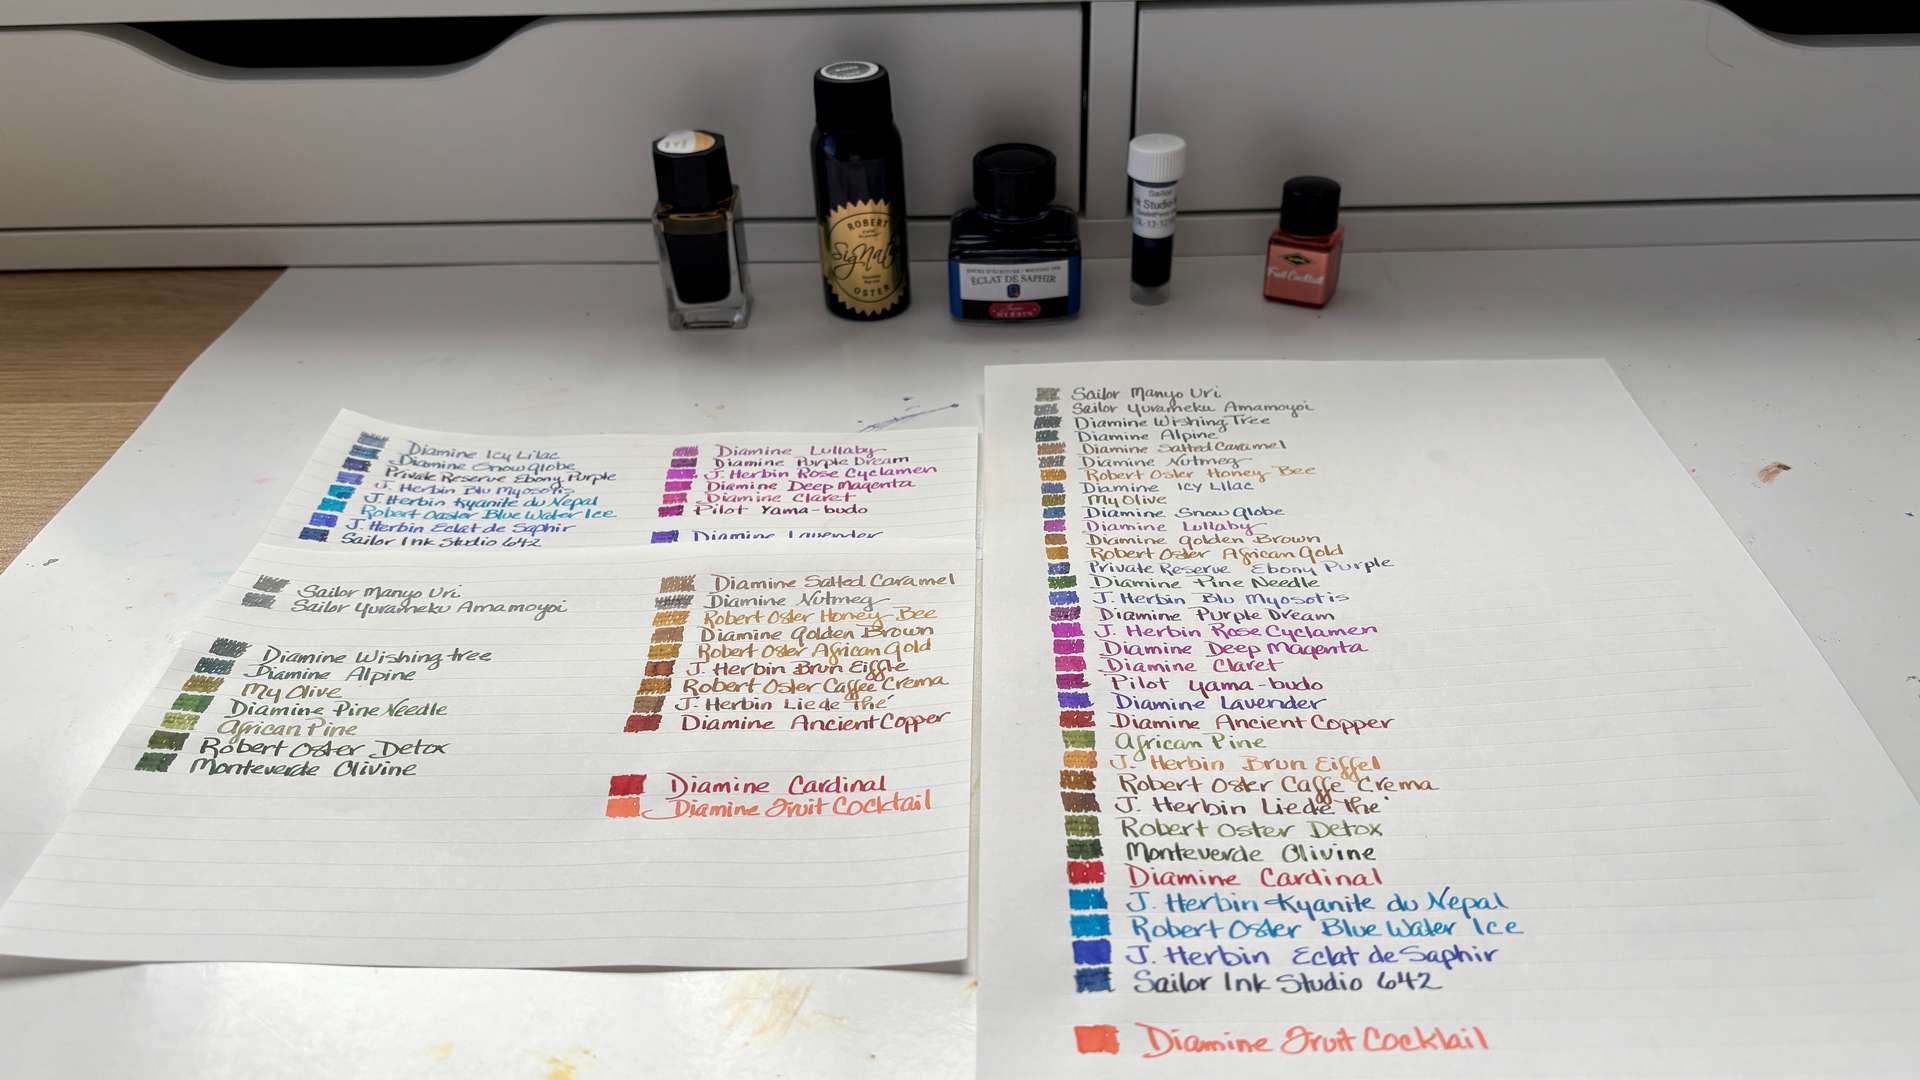 ROBERT
Signat
OSTER
ÉCLAT DE SAPHIR
HERBIN
Sailor
Ink Studio
Fruit Cocktail
Diamine Icy Lilac
Diamine Snow Globe
Private Reserve Ebony Purple
J. Herbin Blu Myosotis
J. Herbin Kyanite du Nepal
Robert Oaster Blue Water Ice
J. Herbin Eclat de Saphir
Sailor Ink Studio 642
Diamine Lullaby
Diamine Purple Dream
J. Herbin Rose Cyclamen
Diamine Deep Magenta
Diamine Claret
Pilot Yama-budo
Diamine Lavender
Sailor Manyo Uri
Sailor Yurameku Amamoyoi
Diamine Wishing tree
Diamine Alpine
My Olive
Diamine Pine Needle
African Pine
Robert Oster Detox
Monteverde Olivine
Diamine Salted Caramel
Diamine Nutmeg
Robert Oster Honey Bee
Diamine Golden Brown
Robert Oster African Gold
J. Herbin Brun Eiffle
Robert Oster Caffee Crema
J. Herbin Lie de Thé
Diamine Ancient Copper
Diamine Cardinal
Diamine Fruit Cocktail
Sailor Manyo Uri
Sailor Yurameku Amamoyoi
Diamine Wishing Tree
Diamine Alpine
Diamine Salted Caramel
Diamine Nutmeg
Robert Oster Honey-Bee
Diamine Icy Lilac
My Olive
Diamine Snow Globe
Diamine Lullaby
Diamine Golden Brown
Robert Oster African Gold
Private Reserve Ebony Purple
Diamine Pine Needle
J. Herbin Blu Myosotis
Diamine Purple Dream
J. Herbin Rose Cyclamen
Diamine Deep Magenta
Diamine Claret
Pilot Yama-budo
Diamine Lavender
Diamine Ancient Copper
African Pine
J. Herbin Brun Eiffel
Robert Oster Caffe Crema
J. Herbin Lie de Thé
Robert Oster Detox
Monteverde Olivine
Diamine Cardinal
J. Herbin Kyanite du Nepal
Robert Oster Blue Water Ice
J. Herbin Eclat de Saphir
Sailor Ink Studio 642
Diamine Fruit Cocktail